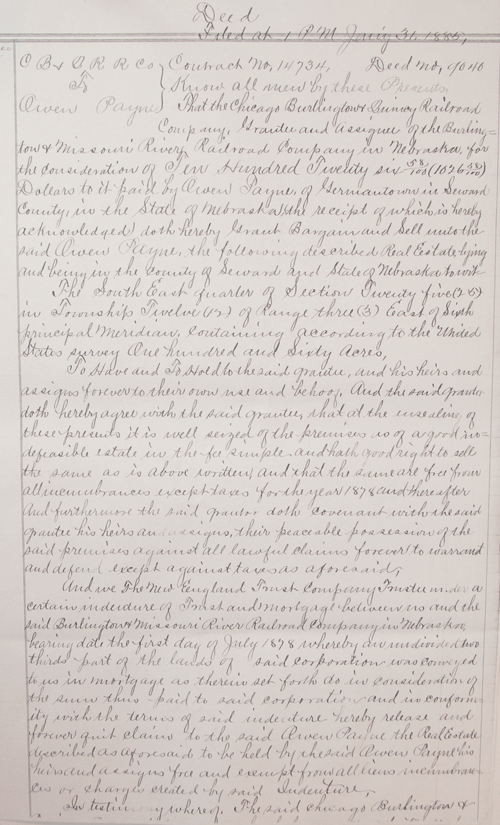 Deed
Filed at 1 P M Jany 31. 1885,
C B & Q R R Co } Contract No, 14734, Deed no, 9040
To } Know all men by these Presents
Owen Payne } That the Chicago Burlington & Quincy Railroad
Company, Grantee and Assignee of the Burling=
ton & Missouri River Railroad Company in Nebraska, for
the consideration of Ten Hundred Twenty six 58/100 (1026 58/100)
Dollars to it paid by Owen Payne, of Germantown in Seward
County, in the State of Nebraska (the receipt of which is hereby
acknowledged) doth hereby Grant Bargain and Sell unto the
said Owen Payne, the following described Real Estate lying
and being in the County of Seward and State of Nebraska to wit
The South East quarter of Section Twenty five (25)
in Township Twelve (12) of Range three (3) East of Sixth
principal Meridian, Containing according to the United
States survey One hundred and Sixty Acres,
To Have and To Hold to the said grantee, and his heirs and
assigns forever to their own use and behoof. And the said grantor
doth hereby agree with the said grantee, that at the ensealing of
these presents it is well seized of the premises as of a good in=
defeasible estate in the fee simple and hath good right to sell
the same as is above written, and that the same are free from
all incumbrances except taxes for the year 1878 and thereafter
And furthermore the said grantor doth covenant with the said
grantee his heirs and assigns, their peaceable possession of the
said premises against all lawful claims forever to warrant
and defend except against taxes as aforesaid,
And we The New England Trust Company Trustee under a
certain indenture of Trust and Mortgage between us and the
said Burlington & Missouri River Railroad Company in Nebraska,
bearing date the first day of July 1878 whereby an undivided two
thirds part of the lands of said corporation was conveyed
to us in mortgage as therein set forth do in consideration of
the sum thus paid to said corporation and in conform
ity with the terms of said indenture hereby release and
forever quit claim to the said Owen Payne the Real Estate
described as aforesaid to be held by the said Owen Payne his
heirs and assigns free and exempt from all liens incumbran=
ces or charges created by said Indenture,
In testimony whereof. The said Chicago Burlington &